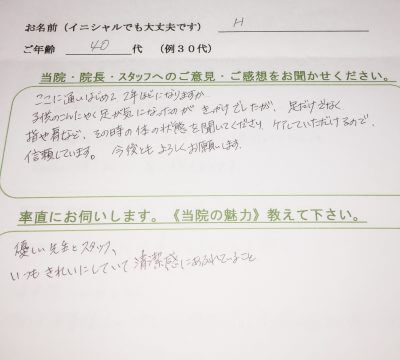 お名前（イニシャルでも大丈夫です） H
ご年齢 40 代 （例３０代）
当院・院長・スタッフへのご意見・ご感想をお聞かせください。
ここに通いはじめて2年ほどになりますが
子供のこんにゃく足が気になったのが きっかけでしたが、足だけでなく
指や肩など、その時の体の状態を聞いてくださり、ケアしていただけるので、
信頼しています。 今後とも よろしくお願いします.
率直にお伺いします。《当院の魅力》教えて下さい。
優しい先生とスタッフ、
いつも きれいにしていて 清潔感にあふれていること